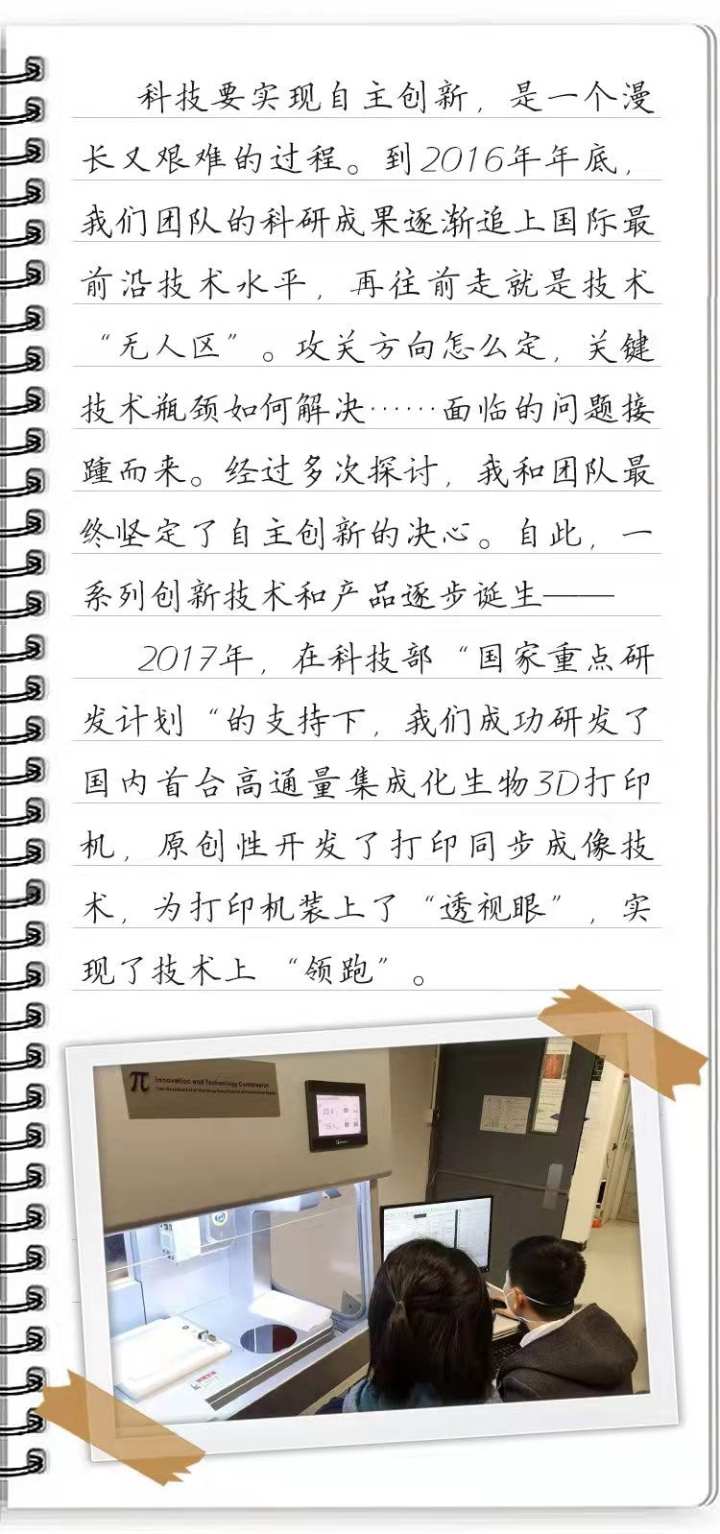 科技要实现自主创新，是一个漫
长又艰难的过程。到2016年年底，
我们团队的科研成果逐渐追上国际最
前沿技术水平，再往前走就是技术
“无人区”。攻关方向怎么定，关键
技术瓶颈如何解决……面临的问题接
踵而来。经过多次探讨，我和团队最
终坚定了自主创新的决心。自此，一
系列创新技术和产品逐步诞生——
2017年，在科技部“国家重点研
发计划“的支持下，我们成功研发了
国内首台高通量集成化生物3D打印
机，原创性开发了打印同步成像技
术，为打印机装上了“透视眼”，实
现了技术上“领跑”。
Innovation and Technology Commission